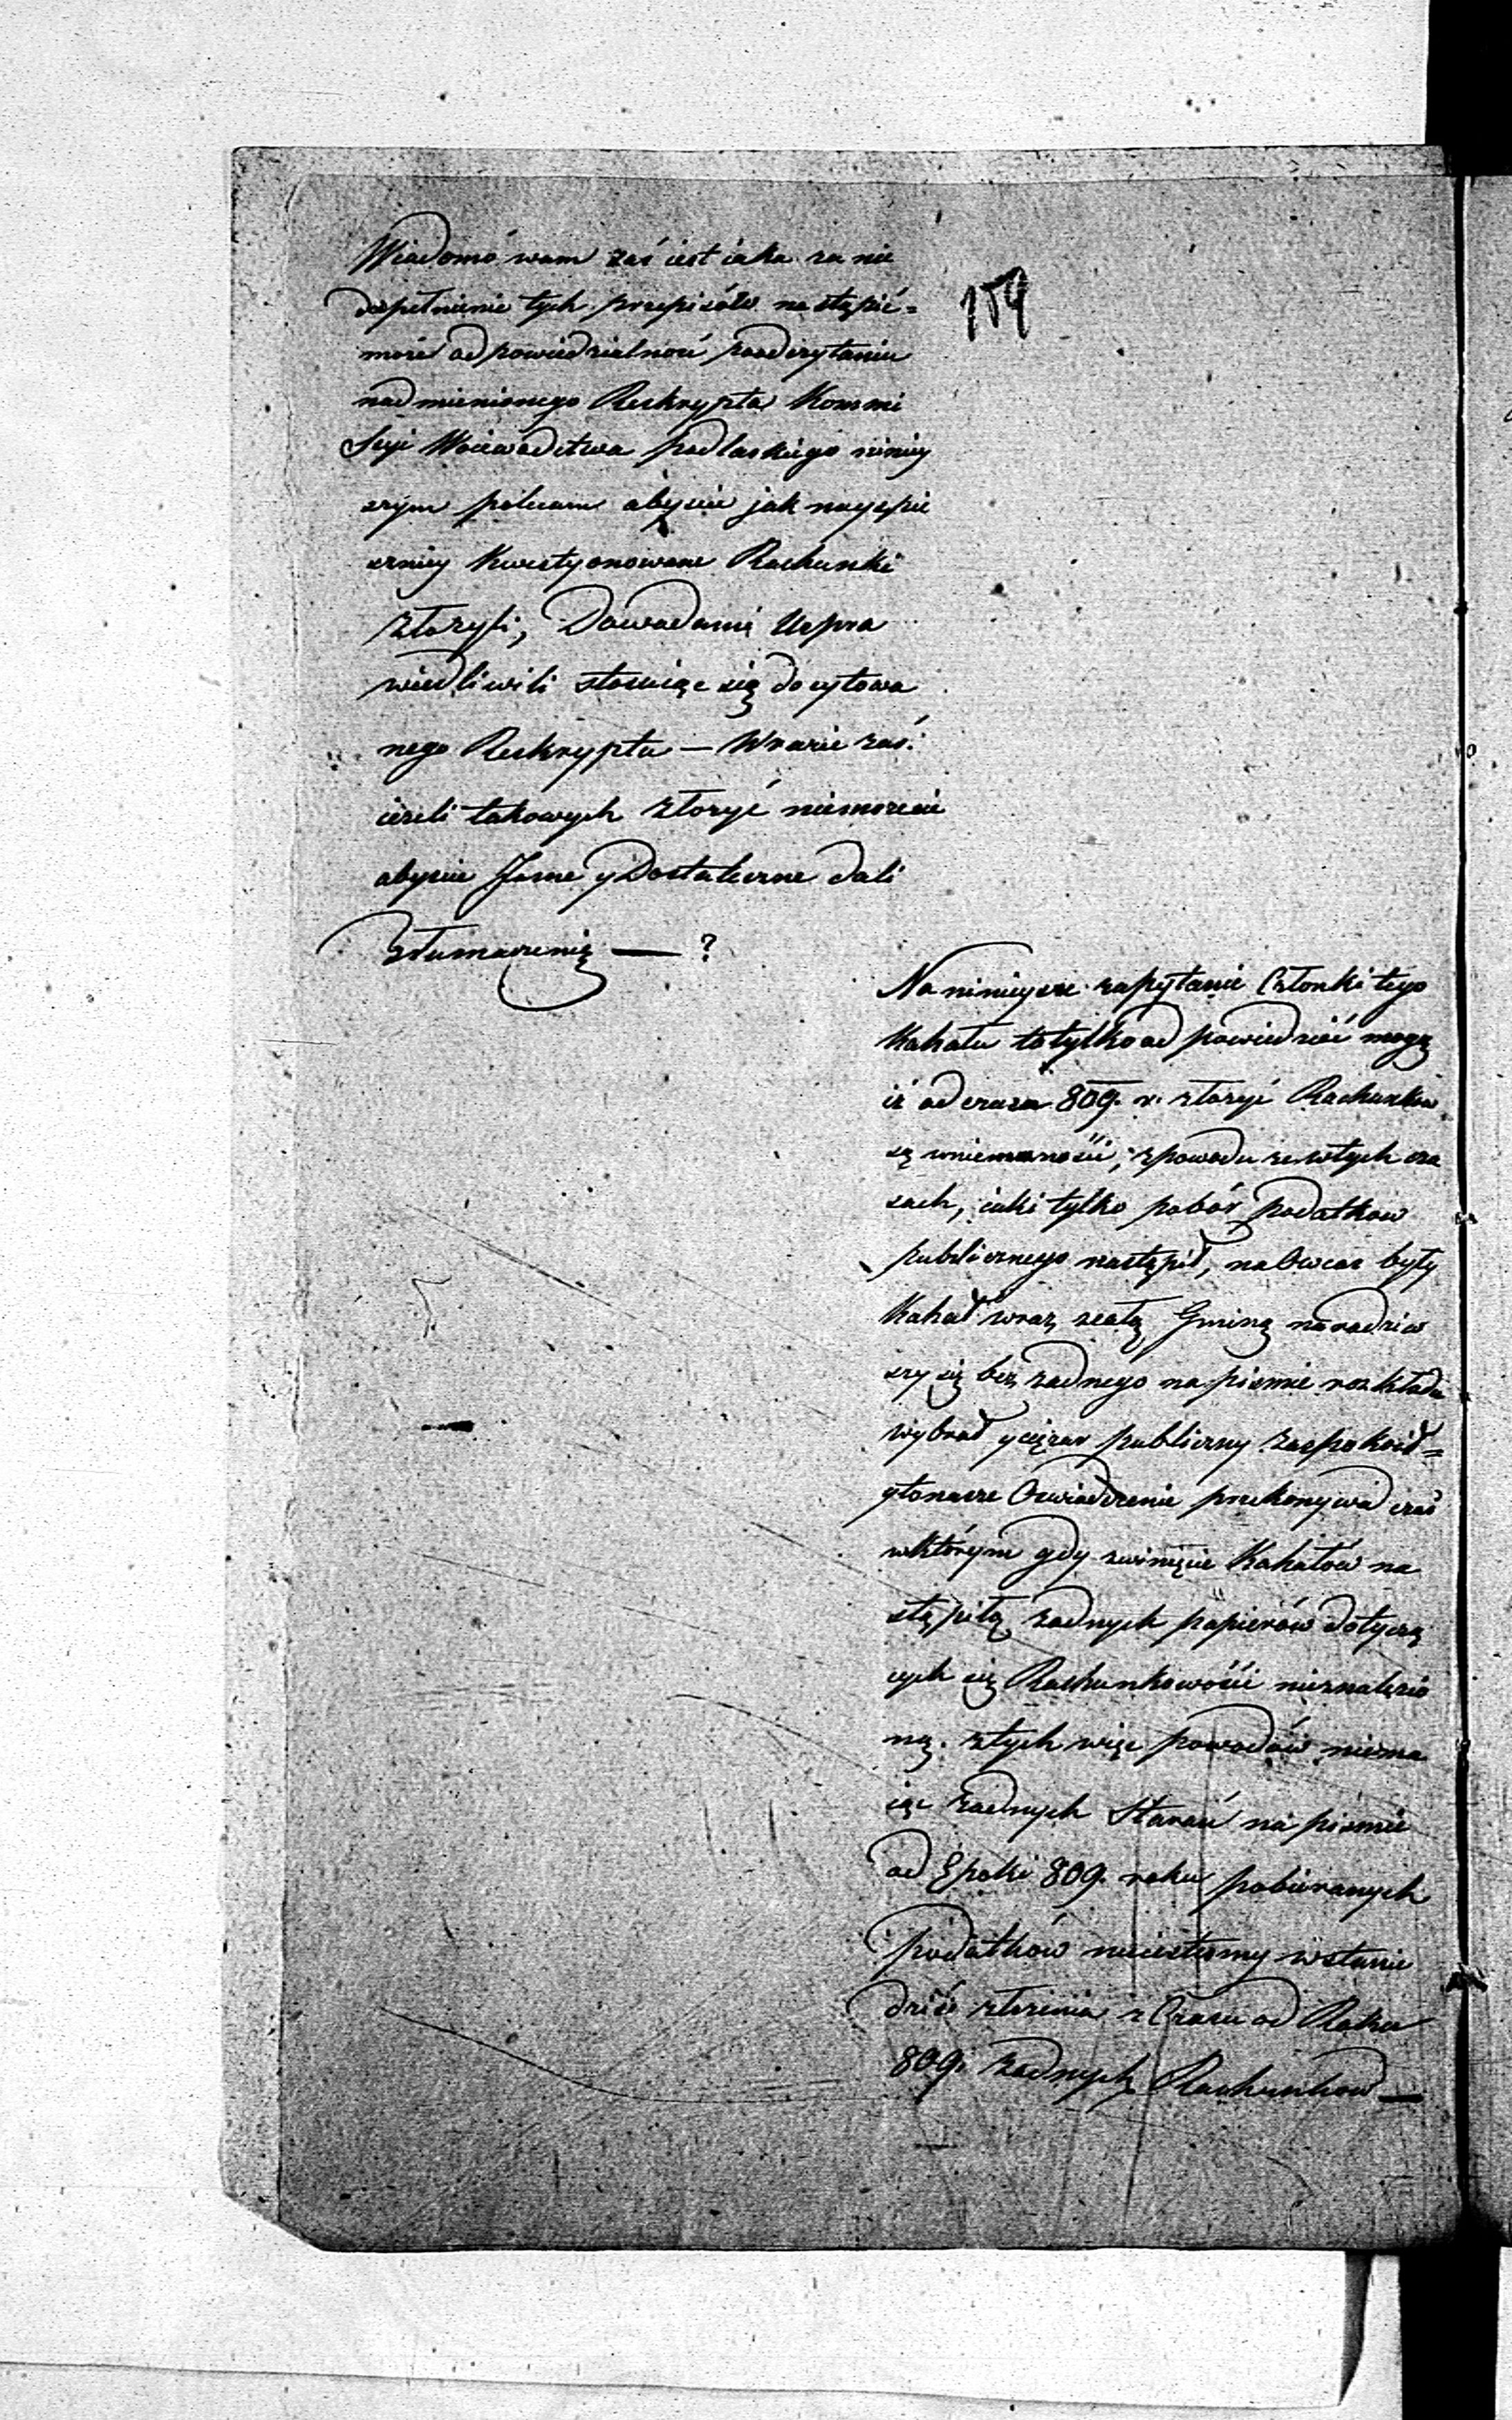 Wiadomo wam zaś iest iaka za nie
dopełnienie tych przepisów nastąpić=
może odpowiedzialność poodczytaniu
nadmienionego Reskryptu Kommi
ssyi Woiewodztwa podlaskiego niniey
szym polecam abyscie jak nayspie
szniey Kwestyonowane Rachunki
złożyli, Dowodami Uspra
wiedliwili stosuiąc się do cytowa
nego Reskryptu — W razie zaś
ieżeli takowych złożyć niemożecie
abyscie Jasne y Dostateczne dali
Tłumaczenię — ?
159
Na ninieysze zapytanie Członki tego
Kahału to tylko odpowiedzieć mogą
iż od czasu 809. r. złożyć Rachunków
są wniemożności, zpowodu że wtych cza
sach, iaki tylko pobór podatkow
publicznego nastąpił, naówczas były
Kahał wraz zcałą Gminą naradziw
szy się bez żadnego na pismie rozkładu
wybrał y ciężar publiczny zaspokoił=
y to nasze Oswiadczenie przekonywa czas
wktórym gdy zwinięcie Kahałów na
stąpiłą żadnych papierów dotyczą
cych się Rachunkowości nieznalezio
ną. ztych więc powodów niema
iąc żadnych na pismie
od Epoki 809. roku pobieranych
podatków nieiestesmy wstanie
dziś złożenia z Czasu od Roku
809. żadnych Rachunkow —